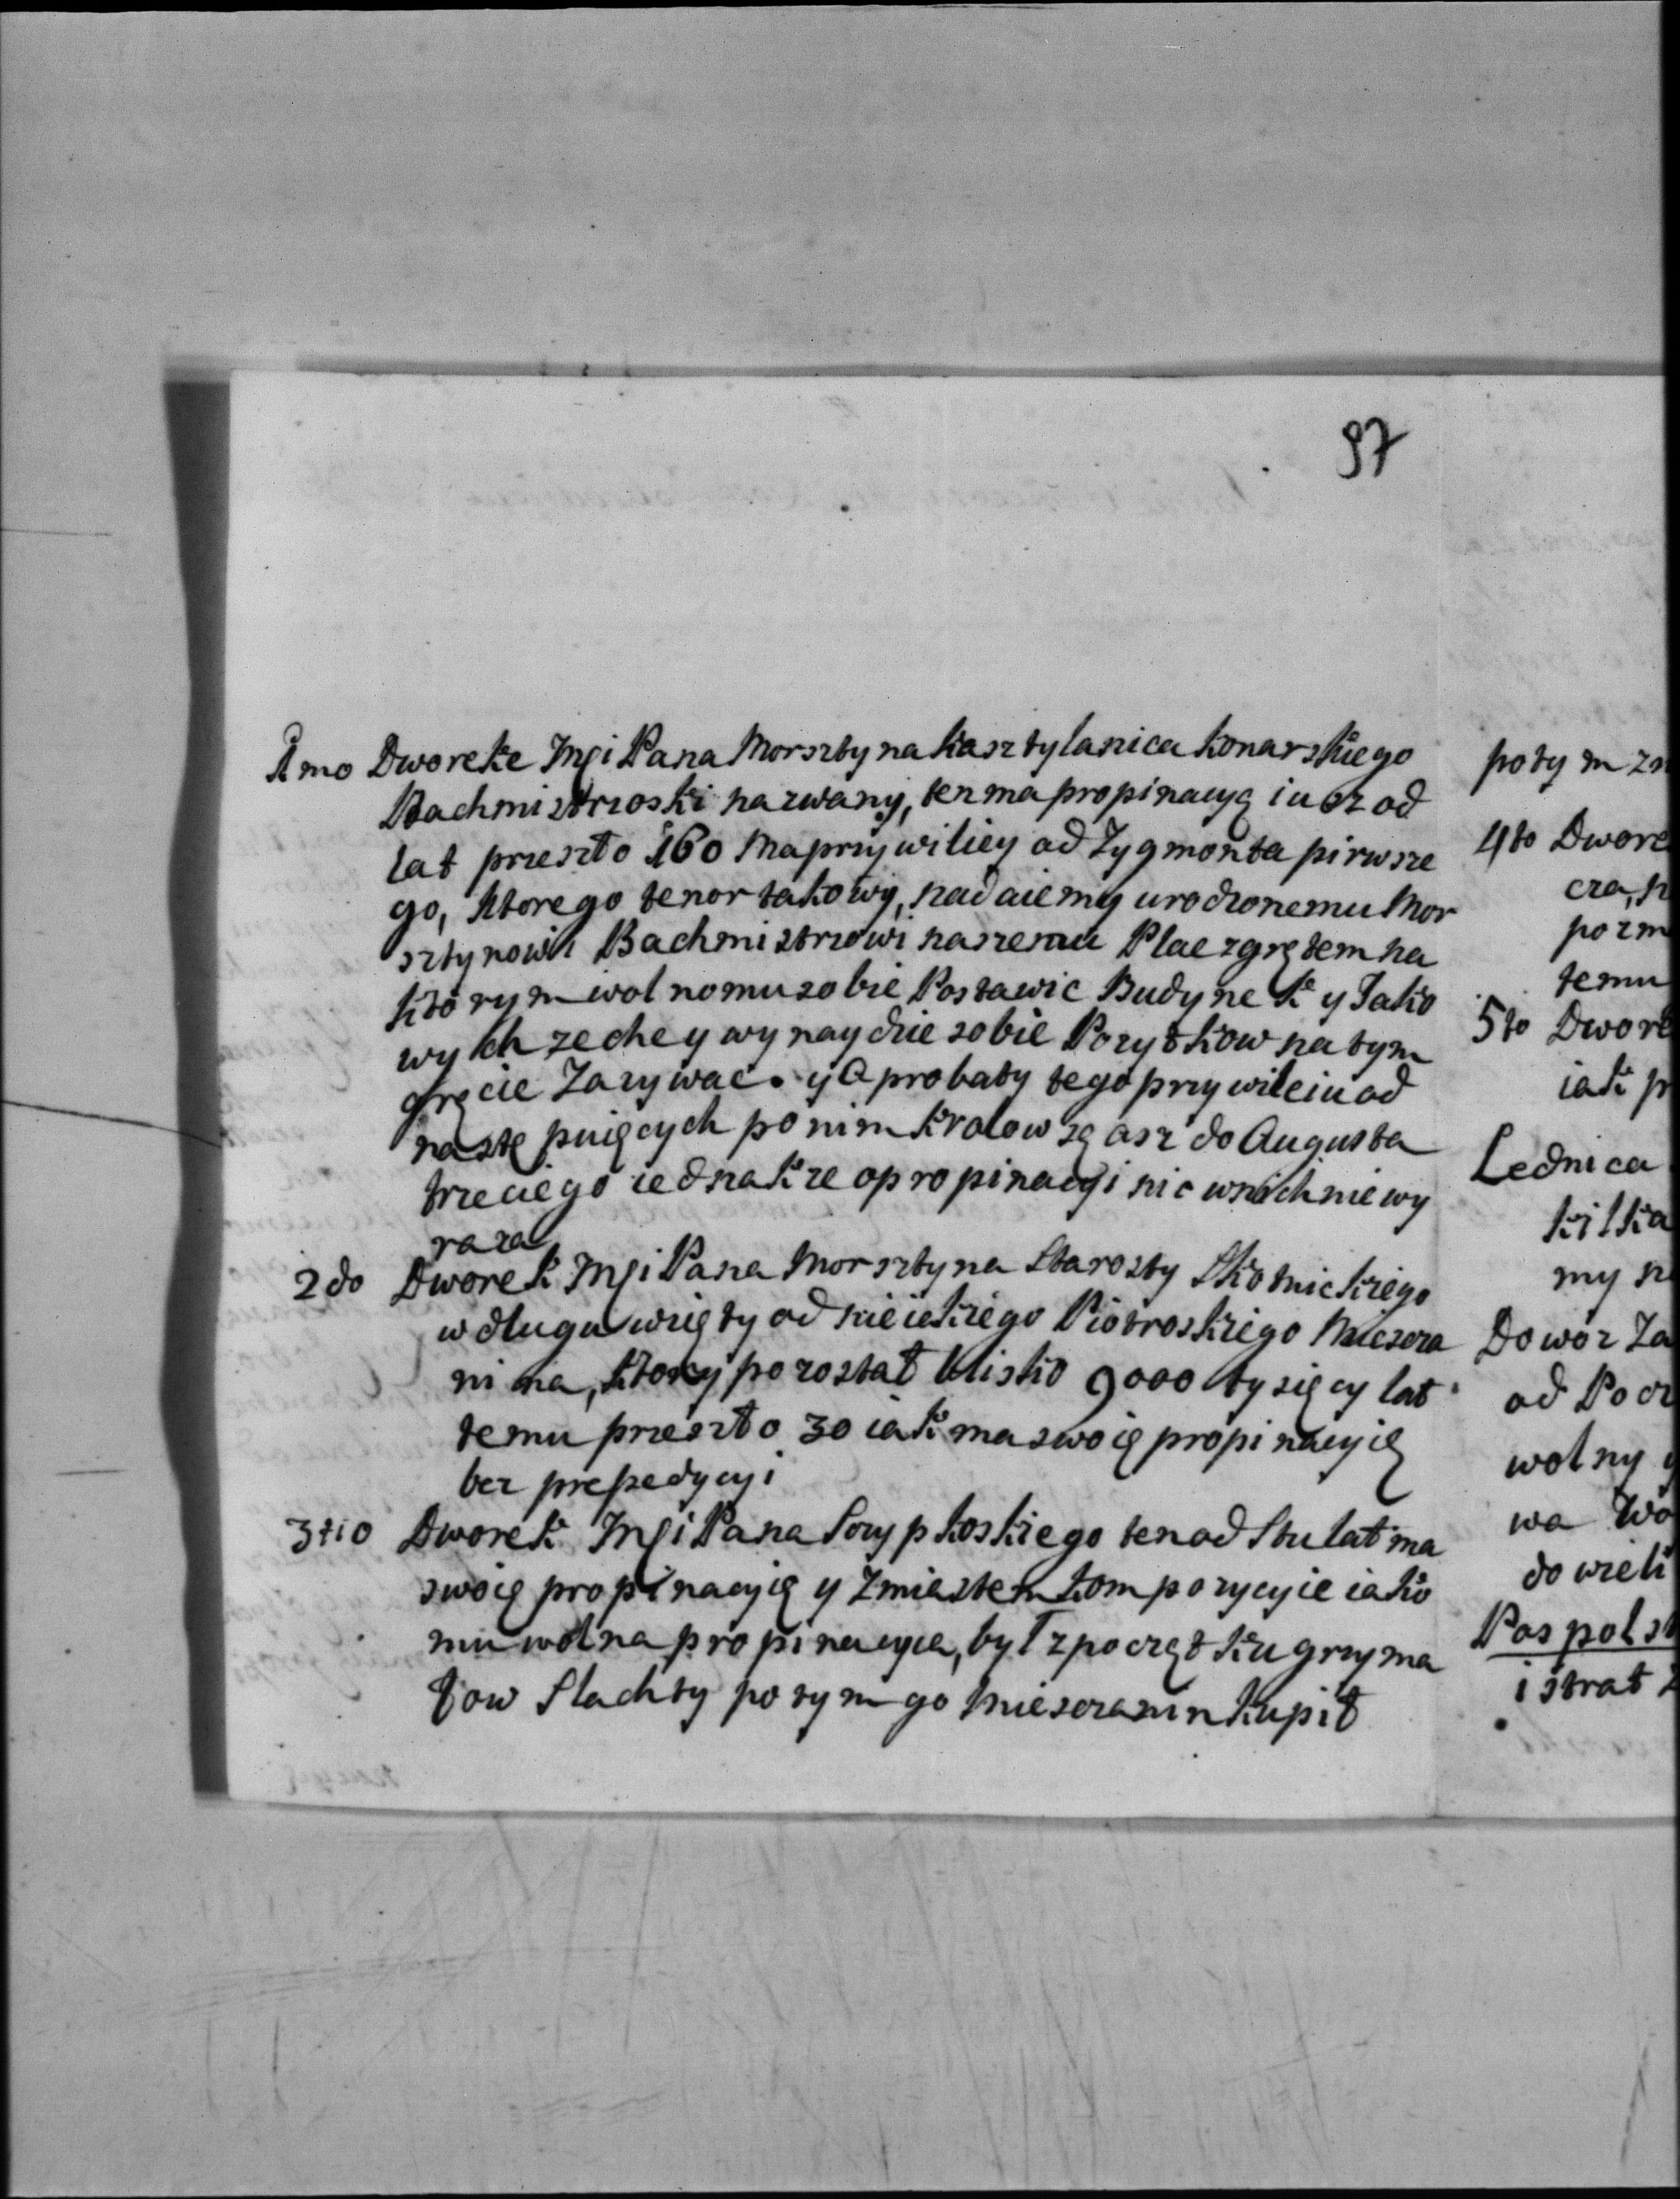 97
1mo Dworek Imci Pana Morsztyna Kasztylanica Konarskiego
Bachmistrzoski nazwany, ten ma propinacyą iusz od
lat przeszło 160 ma przywiliey od Zygmonta pirwsze
go, ktorego tenor takowy, nadaiemy urodzonemu Mor
sztynowi Bachmistrzowi naszemu Plac zgrętem na
ktorym wolnomu sobie Postawic Budynek y Jako
wych zechey wynaydzie sobie Pozytkow na tym
gręcie Zazywac. y Aprobaty tego przywileiu od
nastę puiących po nim Krolow są asz do Augusta
trzeciego iednakze o propinacyi nic wnich nie wy
raza
2do Dworek Imci Pana Morsztyna Starosty Skotnickiego
w dlugu wzięty od nieiekiego Piotroskiego Miescza
nina, ktory pozostał blisko 9000 tysięcy lat
temu przeszło 30 iak ma swoię propinacyię
bez prepedycyi
3tio Dworek Imci Pana ten od Stu lat ma
swoię propinacyię y zmiastem kompozycyie iako
mu wolna propinacyia, był zpoczętku grzyma
łow Slachty potym go Miesczanin kupił
potym zn
4to Dwore
cza, n
pozm
temu
5to Dwore
iak p
Lednica
kilka
my n
Dowor Za
od Pocz
wolny
wa Wo
do wieli
Pospolst
i strat